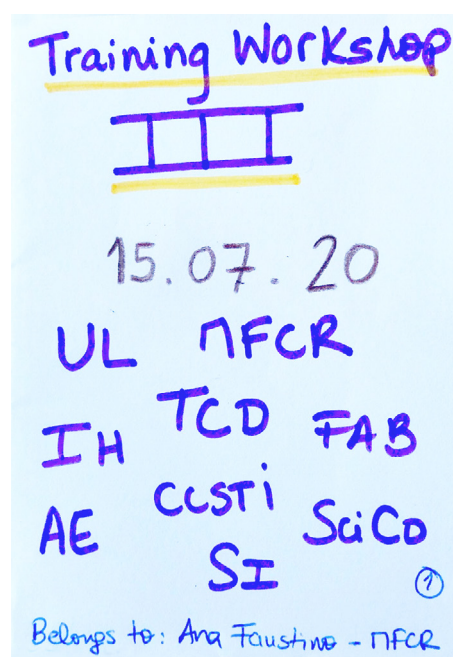 Training Workshop
III
15.07.20
UL MFCR
IH TCD FAB
AE CCSTI SciCo
SI
1
Belongs to: Ana Faustino - MFCR